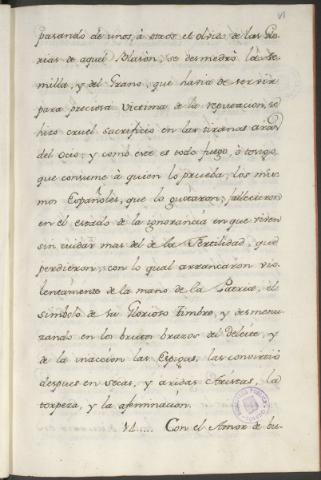 pasando de unos, à otros el olvido de las Glo-
rias de aquel Blason, se desmedrò la Se-
milla, y del Grano, que havia de servir
para preciosa Victima de la reputacion, se
hizo cruel sacrificio en las tiranas Aras
del Ocio; y como este es todo fuego, ò tosigo
que consume à quien lo prueba, los mis-
mos Españoles, que lo gustaron, fallecieron
en el estado de la ignorancia en que viven
sin cuidar mas del de la Fertilidad, que
perdieron; con lo qual arrancaron vio-
lentamente de la mano de la Patria, el
simbolo de su Glorioso Timbre, y desmenu-
zando en los brutos brazos del deleite, y
de la inaccion las Espigas, las convirtiò
despues en secas, y aridas Aristas, la
torpeza, y la afeminacion.
Con el Amor de bu-